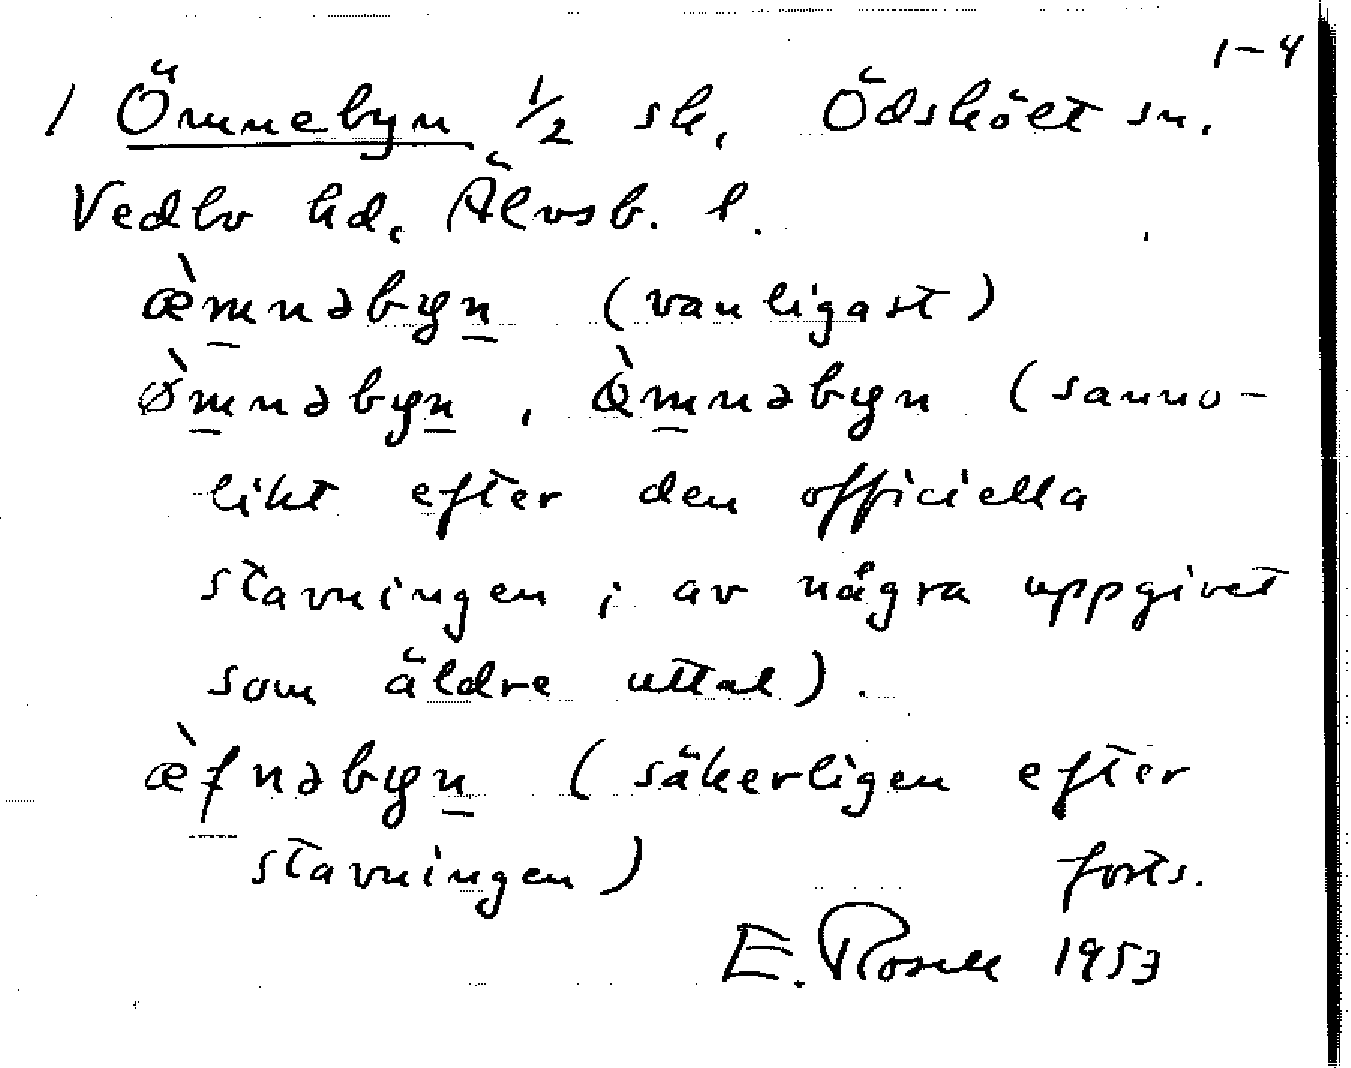 1-4
1 Ömnebyn 1/2 sk. Ödskölt sn.
Vedbo hd. Älvsb. l.
æ̀mnəbyn (vanligast)
ø̀mnəbyn, œ̀mnəbyn (sanno-
likt efter den officiella
stavningen; av några uppgivet
som äldre uttal).
æ̀fnəbyn (säkerligen efter
stavningen) forts.
E. Rosell 1953